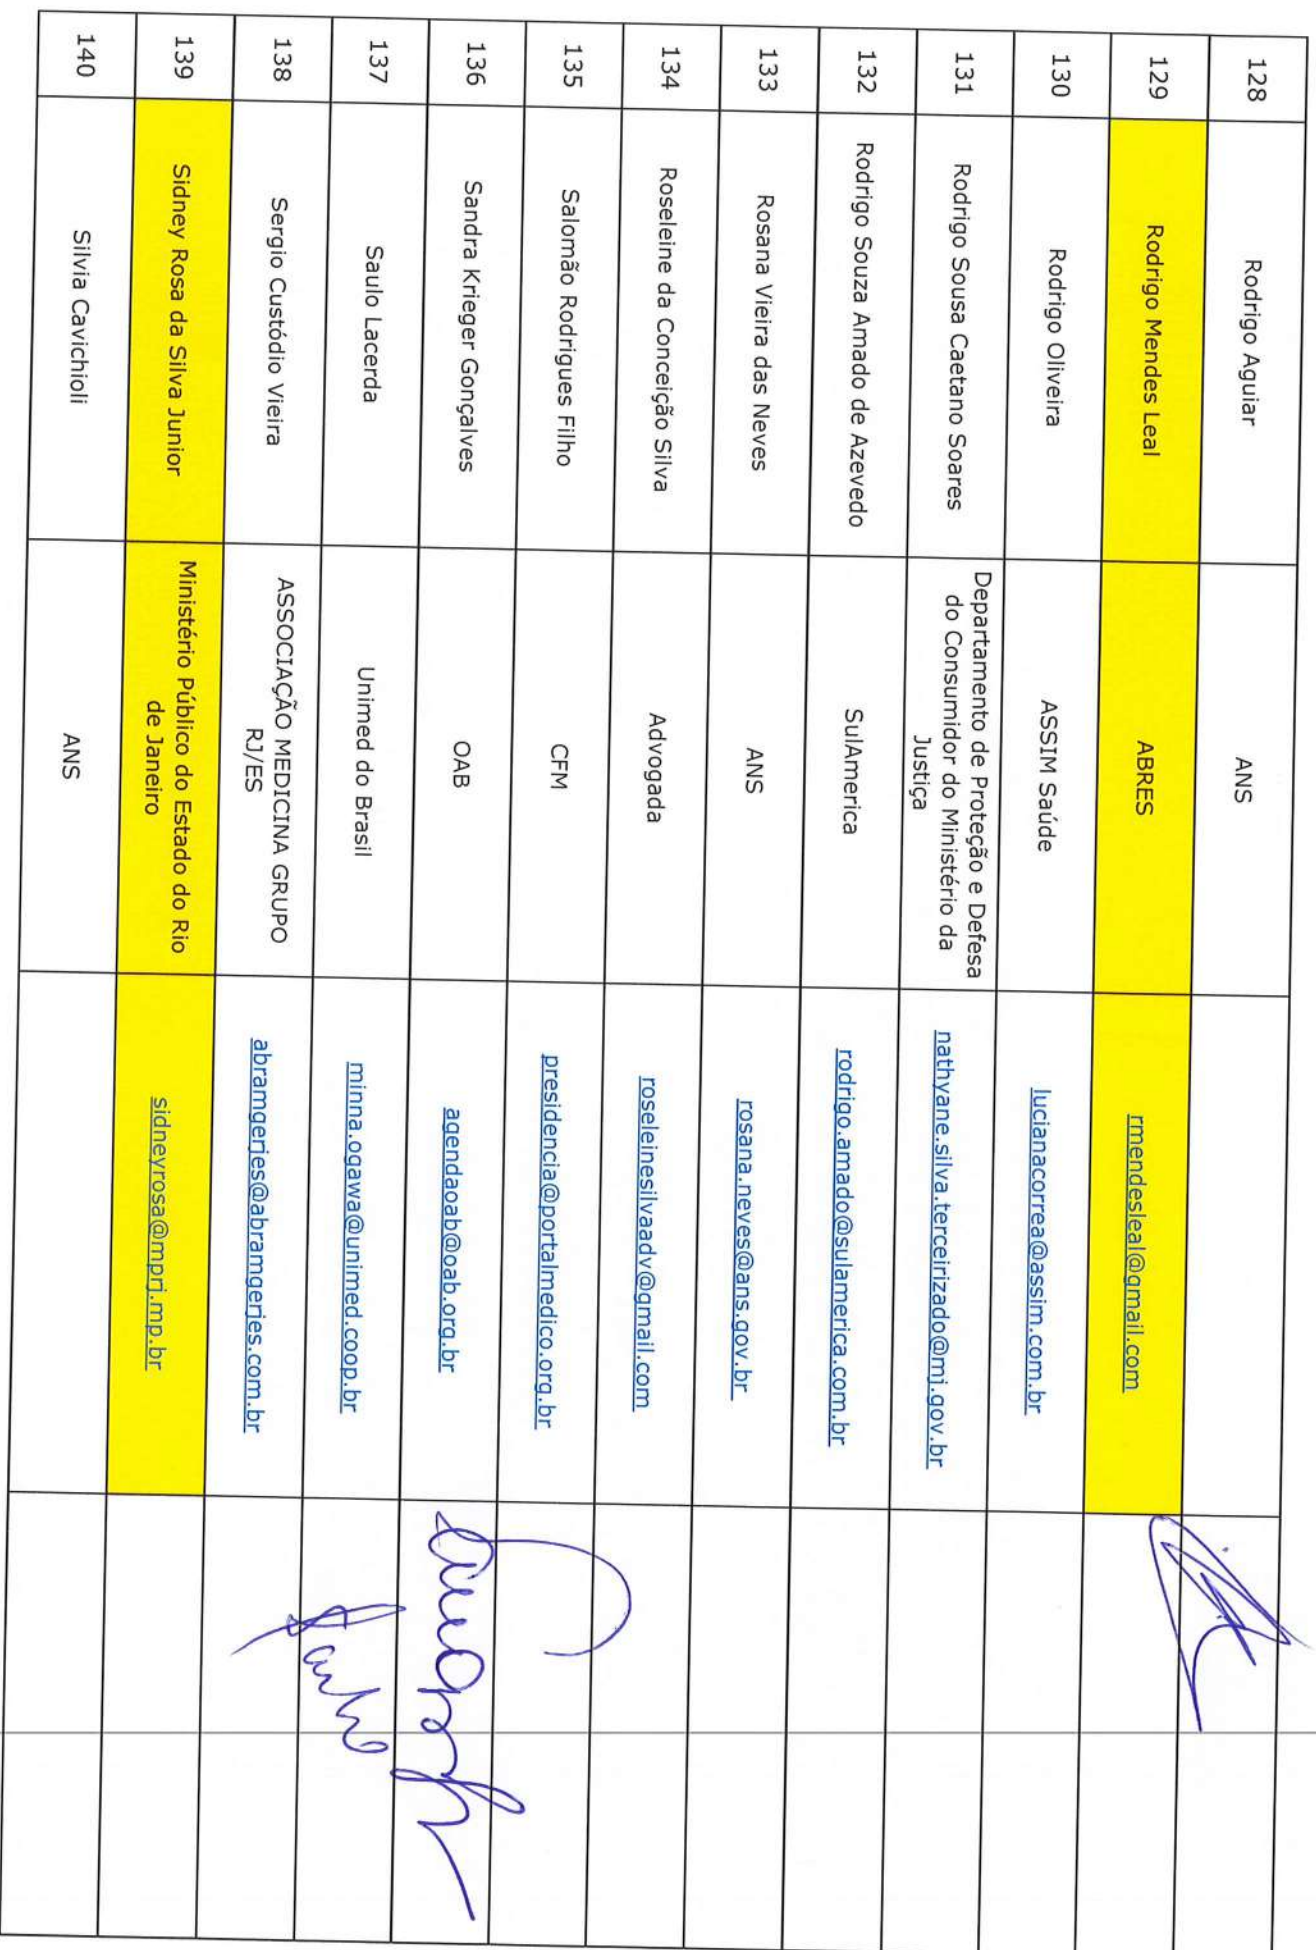 128 Rodrigo Aguiar ANS
129 Rodrigo Mendes Leal ABRES rmendesleal@gmail.com
130 Rodrigo Oliveira ASSIM Saúde lucianacorrea@assim.com.br
131 Rodrigo Sousa Caetano Soares Departamento de Proteção e Defesa
do Consumidor do Ministério da
Justiça nathyane.silva.terceirizado@mj.gov.br
132 Rodrigo Souza Amado de Azevedo SulAmerica rodrigo.amado@sulamerica.com.br
133 Rosana Vieira das Neves ANS rosana.neves@ans.gov.br
134 Roseleine da Conceição Silva Advogada roseleinesilvaadv@gmail.com
135 Salomão Rodrigues Filho CFM presidencia@portalmedico.org.br
136 Sandra Krieger Gonçalves OAB agendaoab@oab.org.br
137 Saulo Lacerda Unimed do Brasil minna.ogawa@unimed.coop.br
138 Sergio Custódio Vieira ASSOCIAÇÃO MEDICINA GRUPO
RJ/ES abramgerjes@abramgerjes.com.br
139 Sidney Rosa da Silva Junior Ministério Público do Estado do Rio
de Janeiro sidneyrosa@mprj.mp.br
140 Silvia Cavichioli ANS